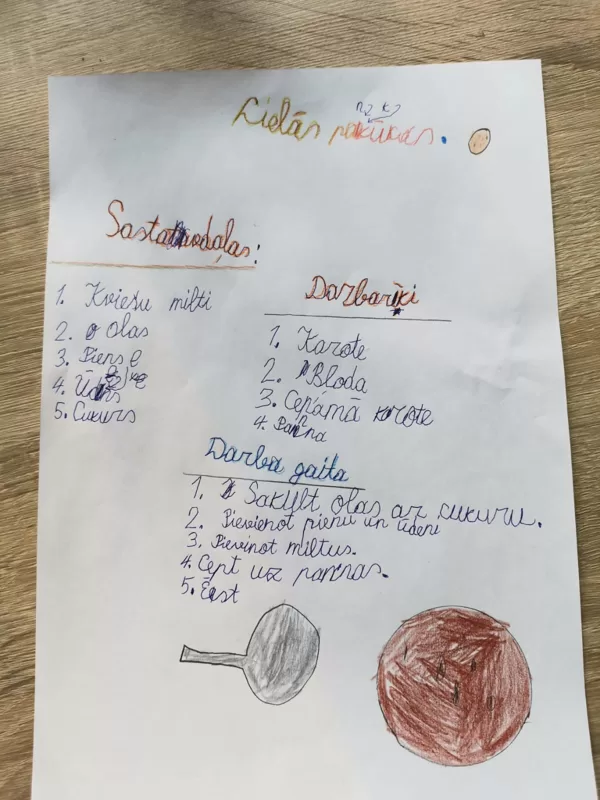 Lielās pankūkas.
Sastāvdaļas:
1. Kviešu milti
2. Olas
3. Piens
4. Ūdens
5. Cukurs
Darbarīki
1. Karote
2. Bloda
3. Cepamā karote
4. Panna
Darba gaita
1. Sakult olas ar cukuru.
2. Pievienot pienu un ūdeni
3. Pievinot miltus.
4. Cept uz pannas.
5. Ēst